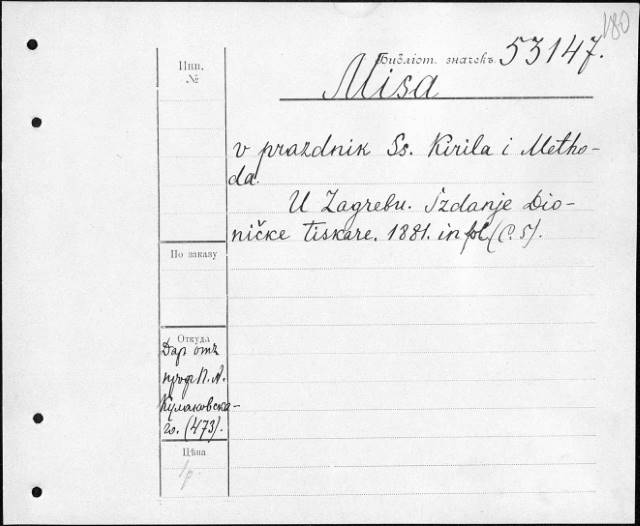 180
Библіот. значекъ 53147.
Инв.
№
Misa
v prazdnik Ss. Kirila i Metho-
da.
U Zagrebu. Izdanje Dio-
ničke tiskare. 1881. in fol. (C. 5).
По заказу
Откуда
Дар отъ
проф. П. А.
Кулаковска-
го. (473).
Цѣна
1 р.